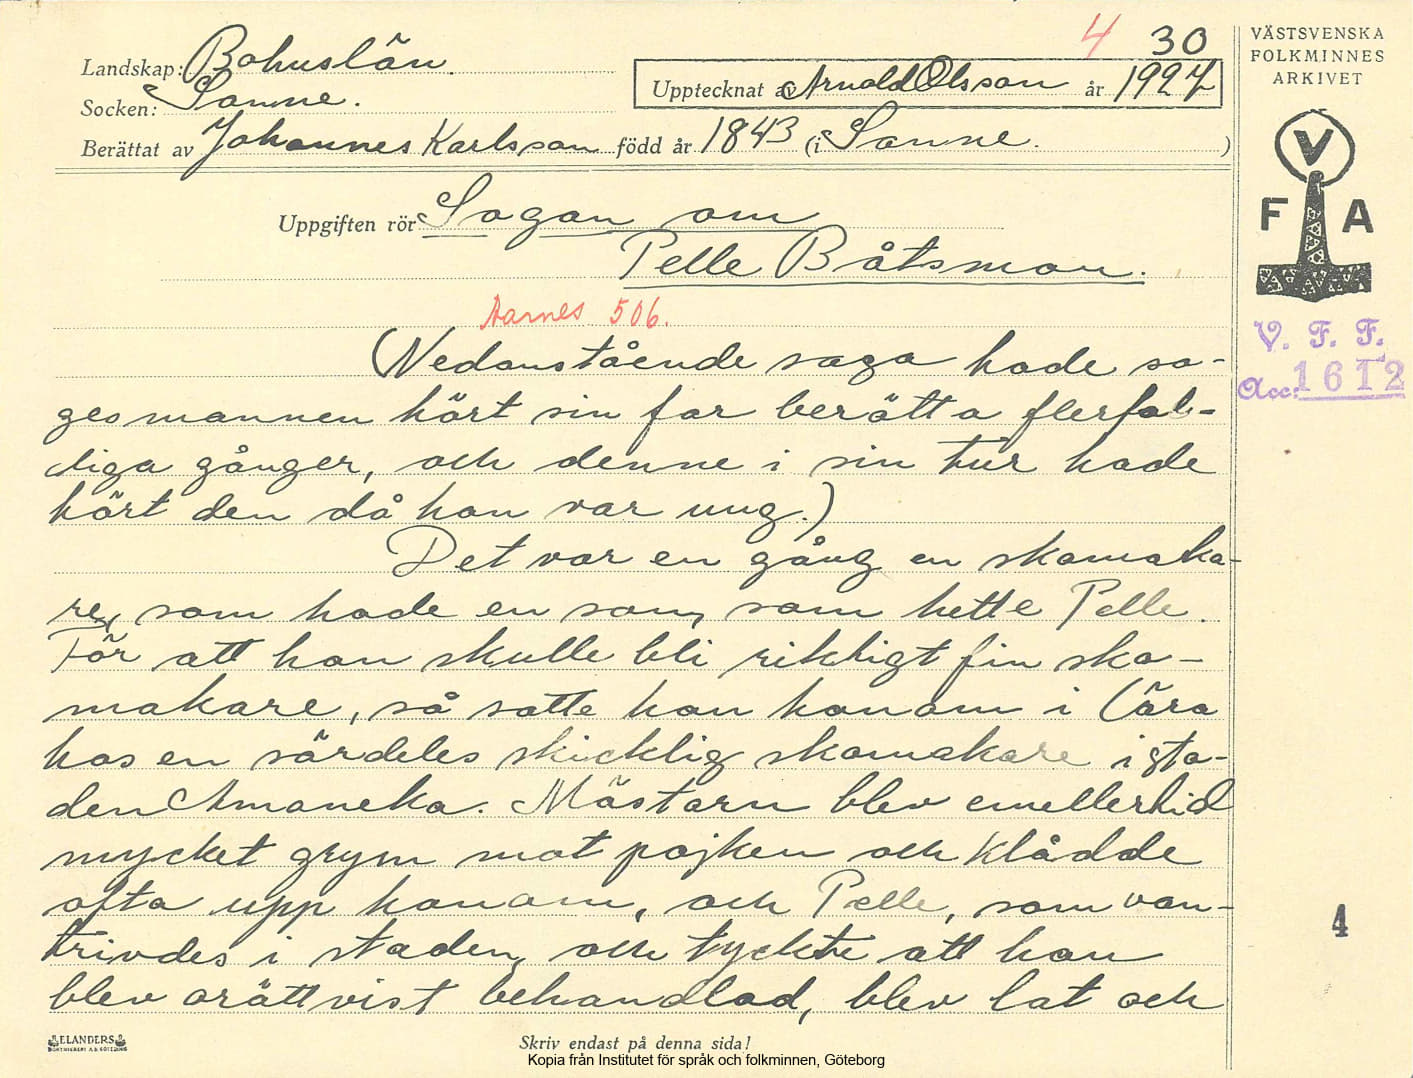 4 30
Landskap: Bohuslän.
Socken: Sanne.
Upptecknat av Arnold Olsson år 1927
Berättat av Johannes Karlsson född år 1843 (i Sanne. )
Uppgiften rör Sagan om
Pelle Båtsman.
Aarnes 506.
(Nedanstående saga hade sa-
gesmannen hört sin far berätta flerfal-
diga gånger, och denne i sin tur hade
hört den då han var ung.)
Det var en gång en skomaka-
re, som hade en son, som hette Pelle.
För att han skulle bli riktigt fin sko-
makare, så satte han honom i lära
hos en särdeles skicklig skomakare i sta-
den Amaneka. Mästarn blev emellertid
mycket grym mot pojken och klådde
ofta upp honom, och Pelle, som van-
trivdes i staden, och tyckte att han
blev orättvist behandlad, blev lat och
ELANDERS
Skriv endast på denna sida!
Kopia från Institutet för språk och folkminnen, Göteborg
VÄSTSVENSKA
FOLKMINNES
ARKIVET
V
F A
V. F. F.
Acc: 1612
4